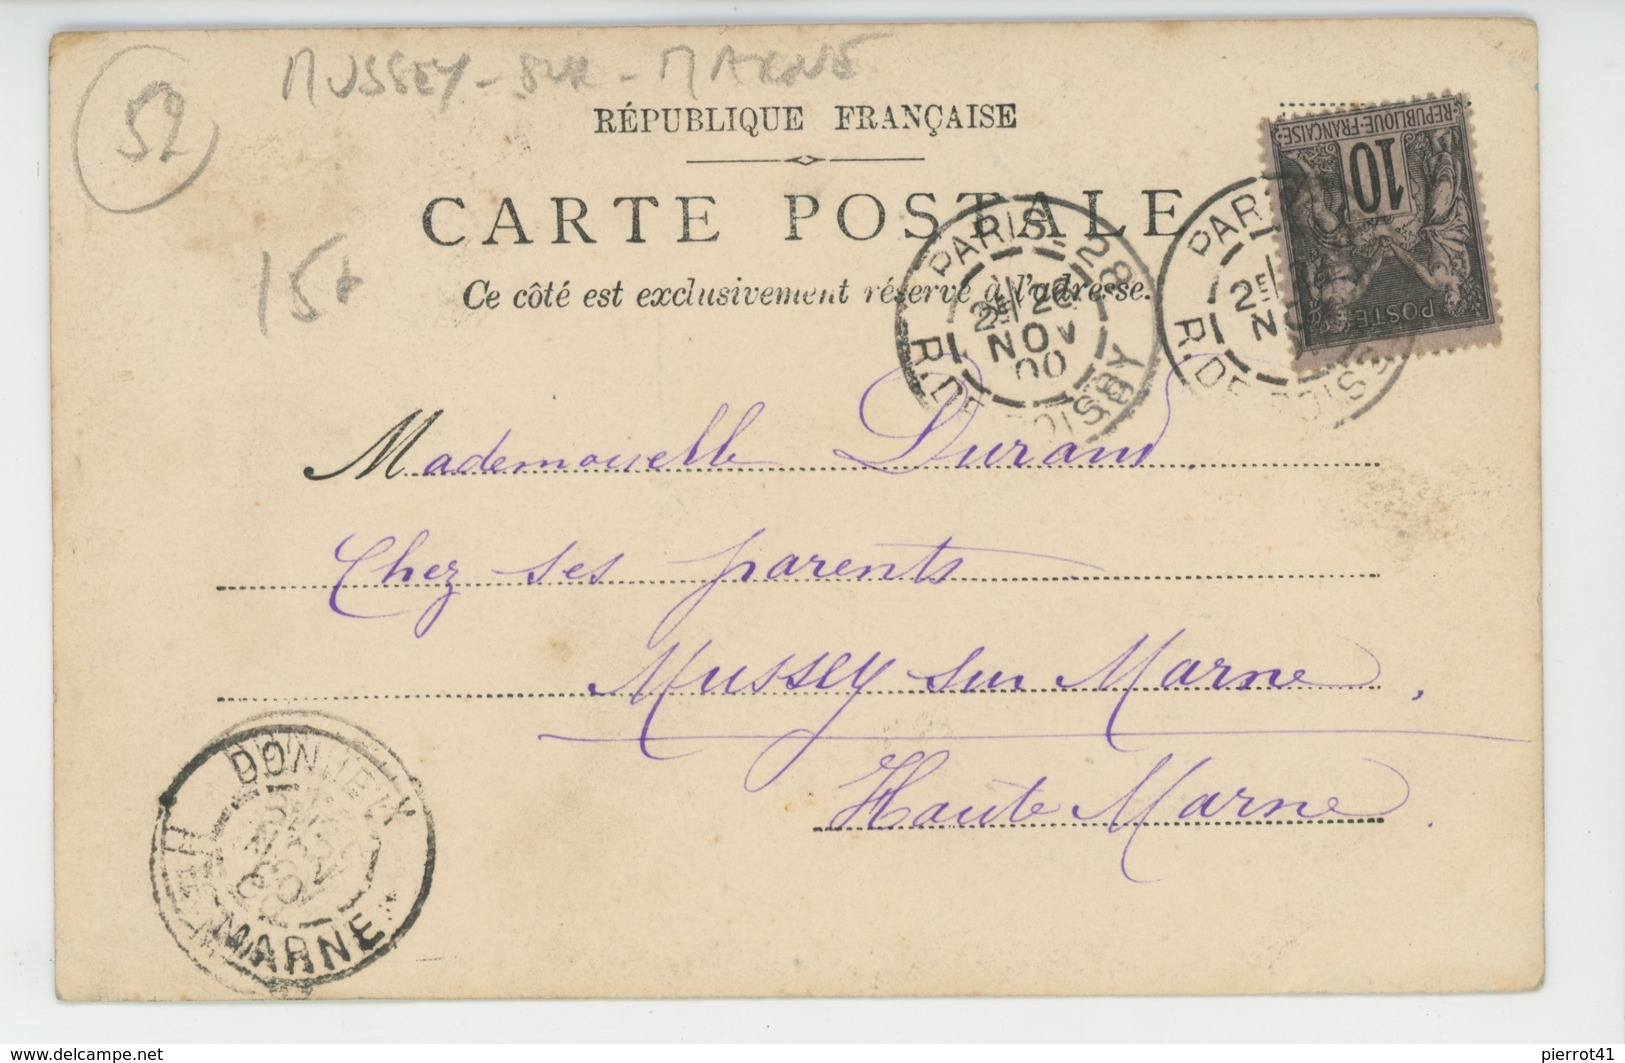 MUSSEY-SUR-MARNE
52
15€
RÉPUBLIQUE FRANÇAISE
CARTE POSTALE
Ce côté est exclusivement réservé à l'adresse.
RÉPUBLIQUE-FRANÇAISE
10
POSTE
PARIS-28
2E 26
NOV
00
PAR
2E
R.DE
Mademoiselle Durand
Chez ses parents
Mussey sur Marne,
Haute Marne.
DONJEUX
NOV
00
HTE MARNE
delcampe.net
pierrot41